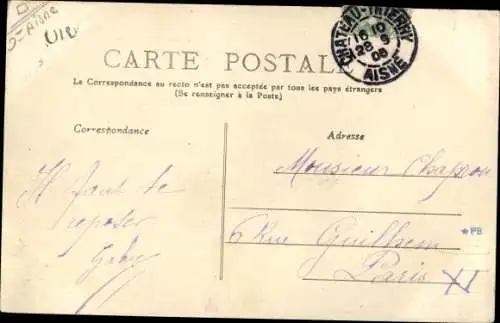 Dᵗ Aisne
CHATEAU-THIERRY
16 10
28 9
08
AISNE
CARTE POSTALE
La Correspondance au recto n'est pas acceptée par tous les pays étrangers
(Se renseigner à la Poste)
Correspondance
Adresse
Monsieur Chapron
Il faut te
reposer
6 Rue Guilhem
Paris XI
*PB